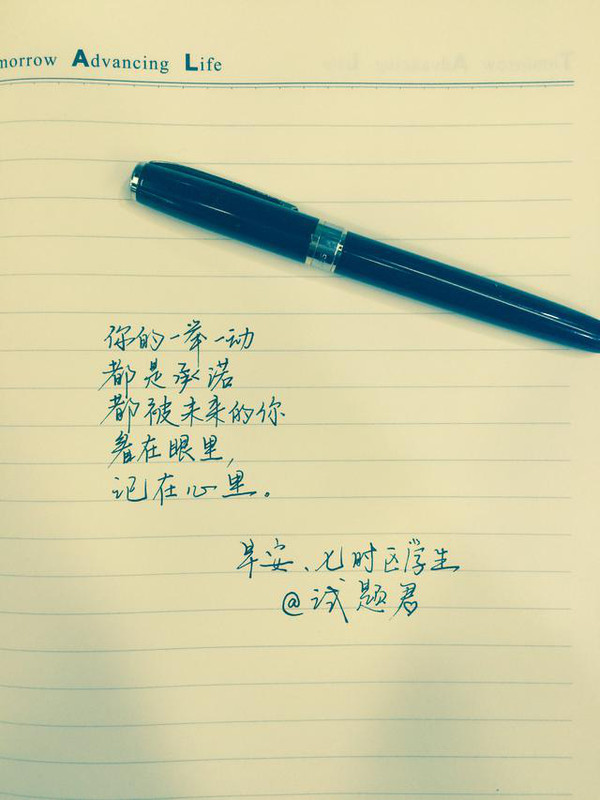 omorrow Advancing Life
你的一举一动
都是承诺
都被未来的你
看在眼里，
记在心里。
早安、七时区学生
@试题君